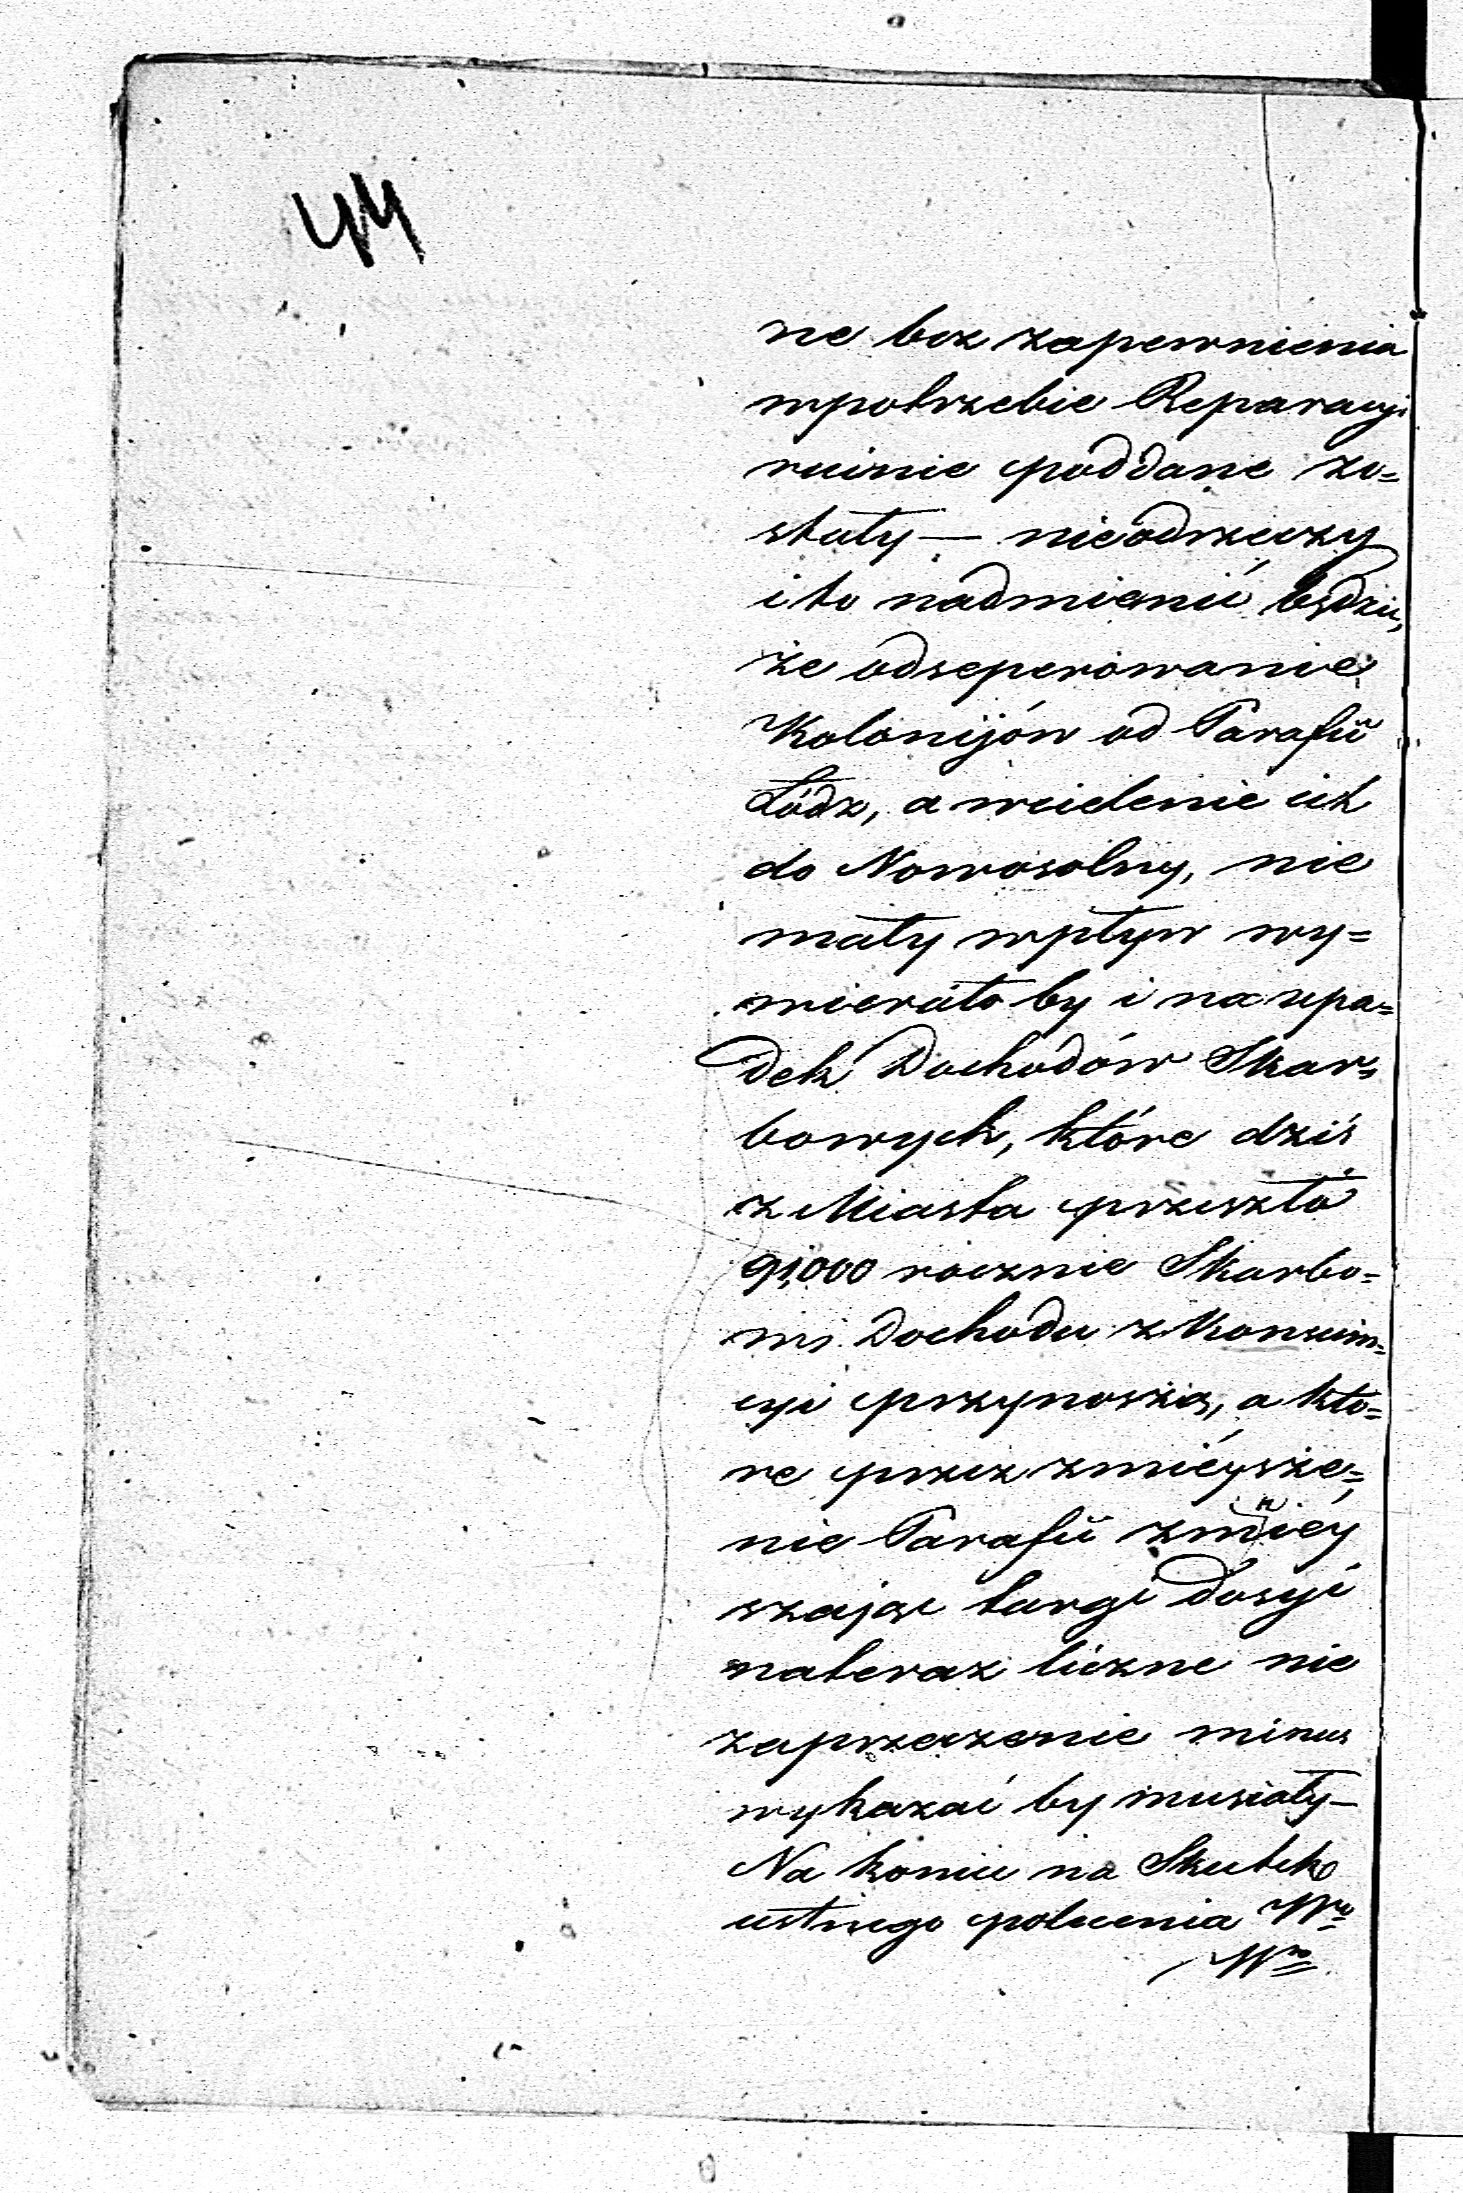 44
ne bez zapewnienia
wpotrzebie Reparacyi
ruinie poddane zo=
stały — nieodrzeczy
i to nadmienić będzie,
że odseperowanie
Kolonijów od Parafii
Łódz, a wcielenie ich
do Nowosolny, nie
mały wpływ wy=
wierało by i na upa=
dek Dochodów Skar=
bowych, które dziś
z Miasta przeszło
91,000 rocznie Skarbo=
wi Dochodu z Konsum=
cyi przynoszą, a któ=
re przez zmiéysze=
nie Parafii zmniéy
szając targi dosyć
nateraz liczne nie
zaprzeczenie minus
wykazać by musiały —
Na koniec na Skutek
ustnego polecenia Wo
Wo